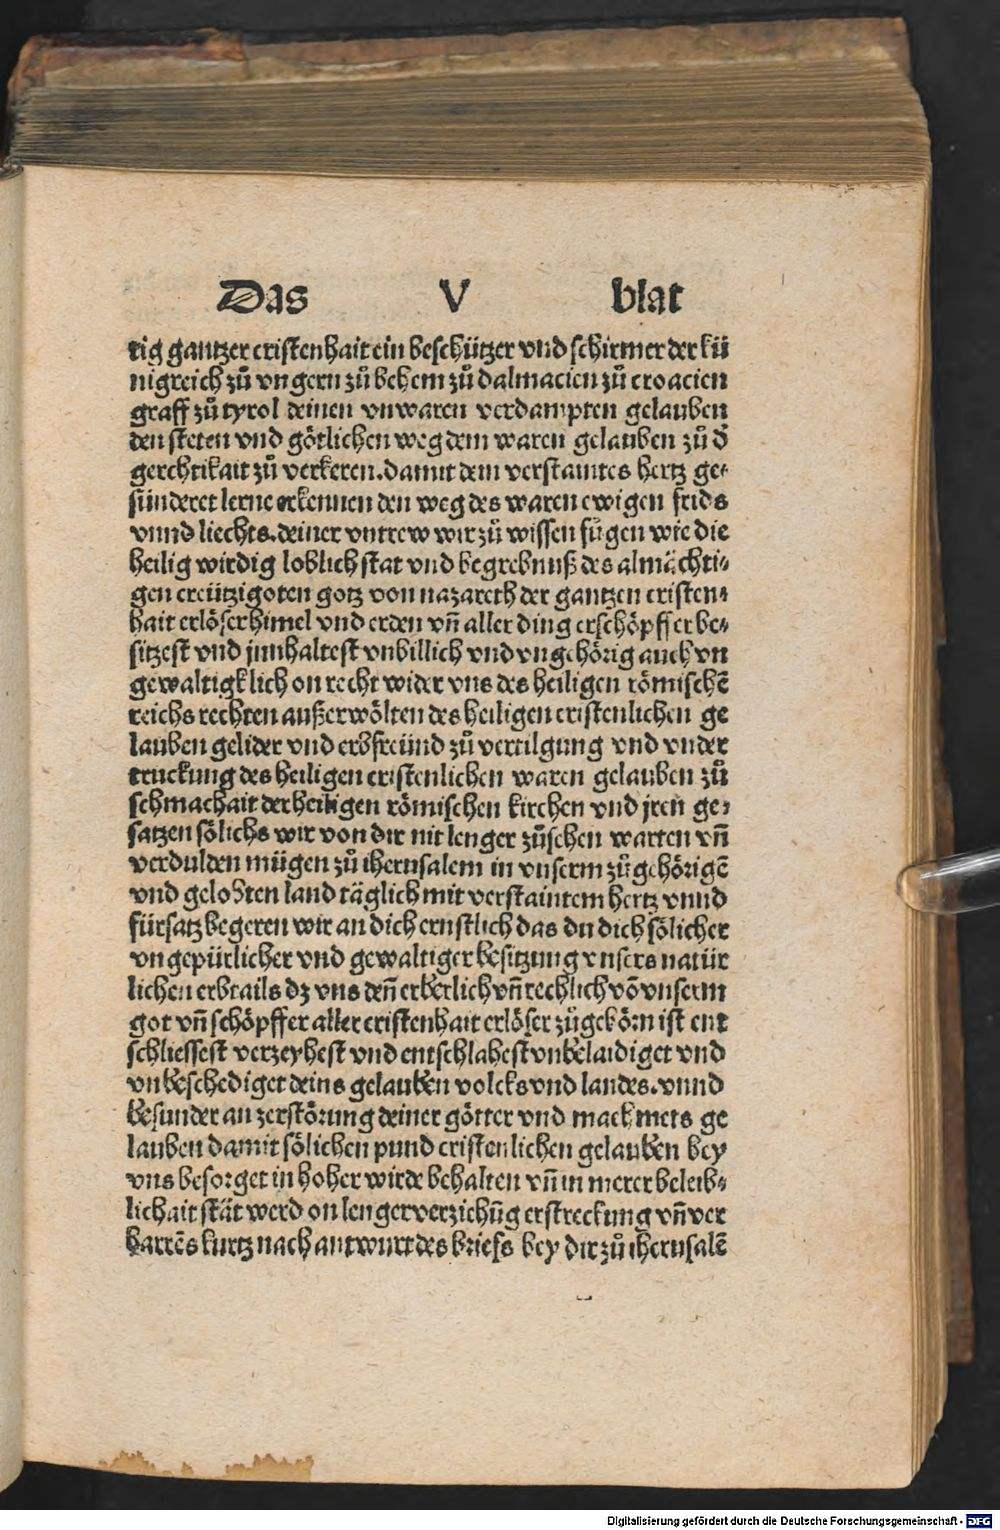 Das V blat
tig gantzer cristenhait ein beschützer vnd schirmer der kü
nigreich zů vngern zů behem zů dalmacien zů croacien
graff zů tyrol deinen vnwaren verdampten gelauben
den steten vnd götlichen weg dem waren gelauben zů d̕
gerechtikait zů verkeren. damit dem verstaintes hertz ge⸗
sünderet lerne erkennen den weg des waren ewigen frids
vnnd liechts. deiner vntrew wir zů wissen fügen wie die
heilig wirdig loblich stat vnd begrebnuß des almächti⸗
gen creützigoten gotz von nazareth der gantzen cristen⸗
hait erlöser himel vnd erden vn̄ aller ding erschöpffer be⸗
sitzest vnd jnnhaltest vnbillich vnd vngehörig auch vn
gewaltigklich on recht wider vns des heiligen römischē
reichs rechten außerwölten des heiligen cristenlichen ge
lauben gelider vnd erbfreünd zů vertilgung vnd vnder
truckung des heiligen cristenlichen waren gelauben zů
schmachait der heiligen römischen kirchen vnd jren ge⸗
satzen sölichs wir von dir nit lenger zůsehen warten vn̄
verdulden mügen zů iherusalem in vnserm zůgehörigē
vnd gelobten land täglich mit verstaintem hertz vnnd
fürsatz begeren wir an dich ernstlich das du dich sölicher
vngepürlicher vnd gewaltiger besitzung vnsers natür
lichen erbtails dz vns den̄ erberlich vn̄ rechlich vō vnserm
got vn̄ schöpffer aller cristenhait erlöser zůgehörn ist ent
schliessest verzeyhest vnd entschlahest vnbelaidiget vnd
vnbeschediget deins gelauben volcks vnd landes. vnnd
besunder an zerstörung deiner götter vnd machmets ge
lauben damit sölichen pund cristenlichen gelauben bey
vns besorget in hoher wirde behalten vn̄ in merer beleib⸗
lichait stät werd on lenger verziehūg erstreckung vn̄ ver
harrēs kurtz nach antwurt des briefs bey dir zů iherusalē
Digitalisierung gefördert durch die Deutsche Forschungsgemeinschaft - DFG